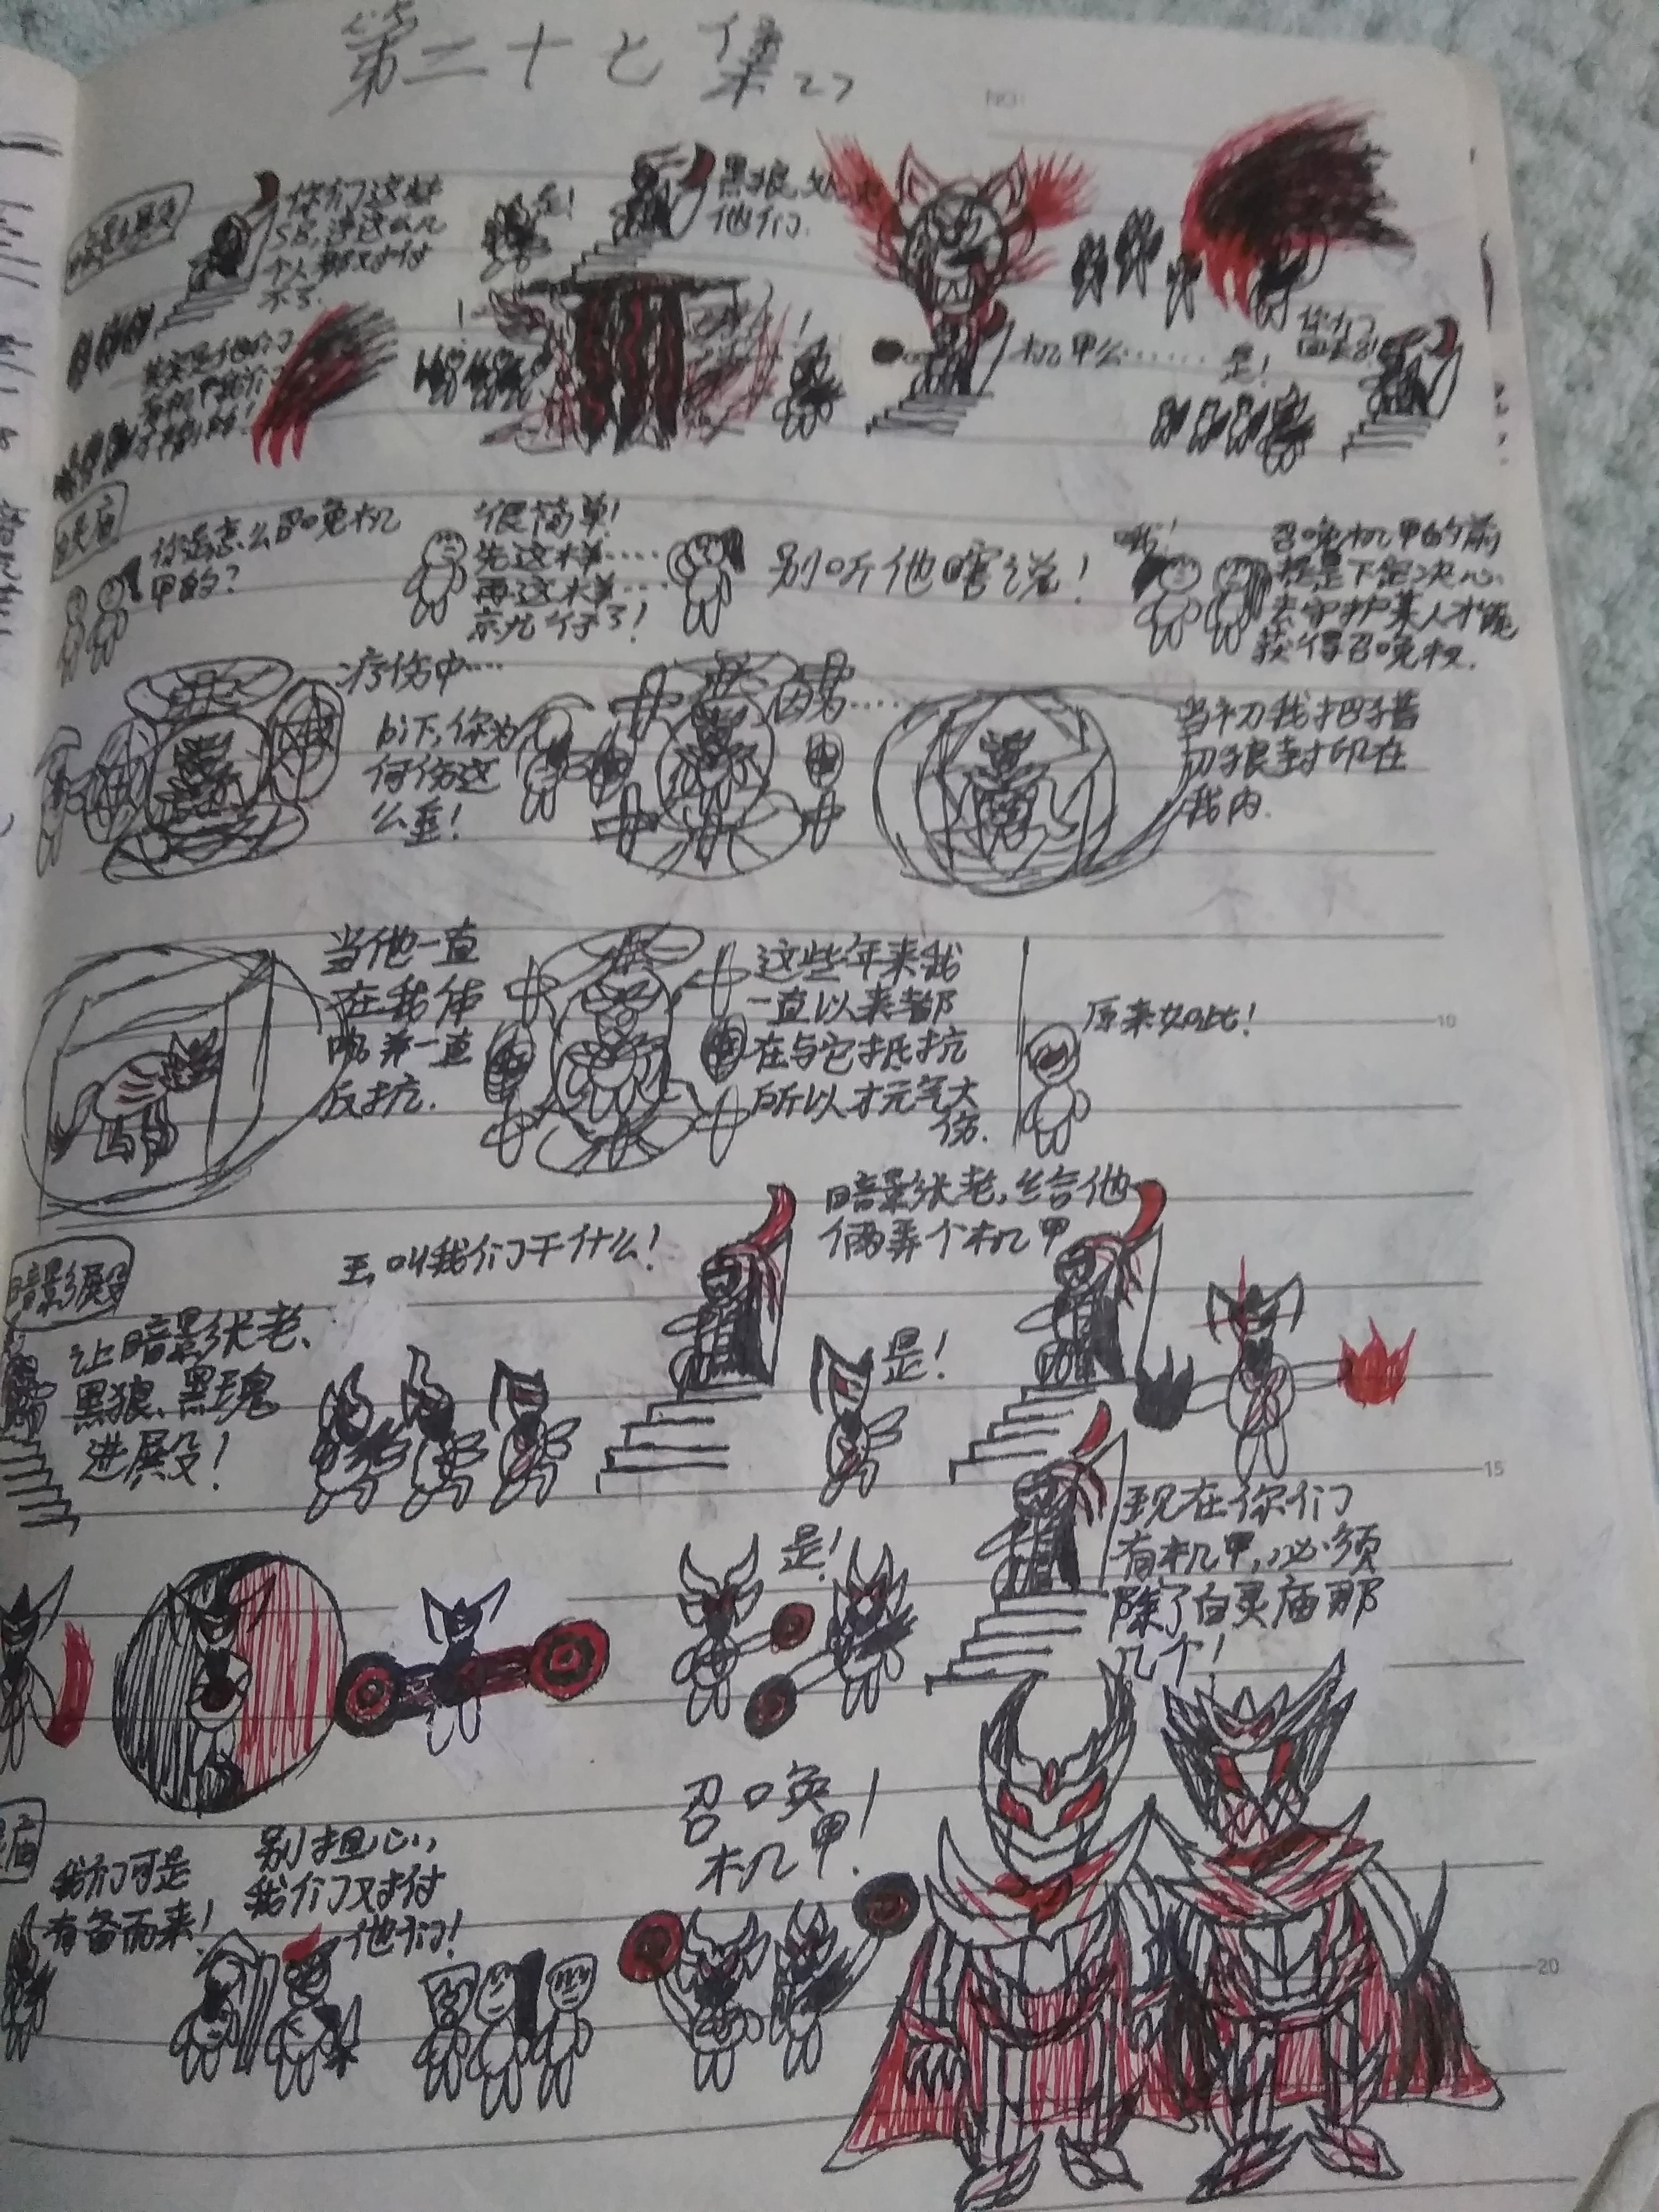 第二十七集27
NO:
暗影殿
你们这些
SB,连这么几
个人都对付
不了.
是!
黑狼,
他们.
其实是他们
有机甲我们
才输的!
!
!
机甲么……
是!
你们
回来!
白灵庙
你返怎么召唤机
甲的?
很简单!
先这样……
再这样……
就行了!
别听他瞎说!
哦!
召唤机甲的前
提是下定决心
去守护某人才能
获得召唤权.
疗伤中……
你为
何伤这
么重!
因为……
当初我把
狼封印在
我内.
当他一直
在我体
内并一直
反抗.
这些年来我
一直以来都
在与它抵抗
所以才元气大
伤.
原来如此!
暗影殿
让暗影张老、
黑狼、黑瑰
进殿!
王,叫我们干什么!
暗影张老,给他
俩弄个机甲
是!
是!
现在你们
有机甲,必须
除了白灵庙那
几个!
庙
我们可是
有备而来!
别担心,
我们对付
他们!
召唤
机甲!
10
15
20